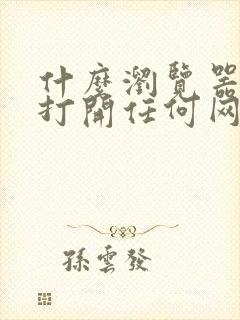 什麼瀏覽器
打開任何网
孫雲發